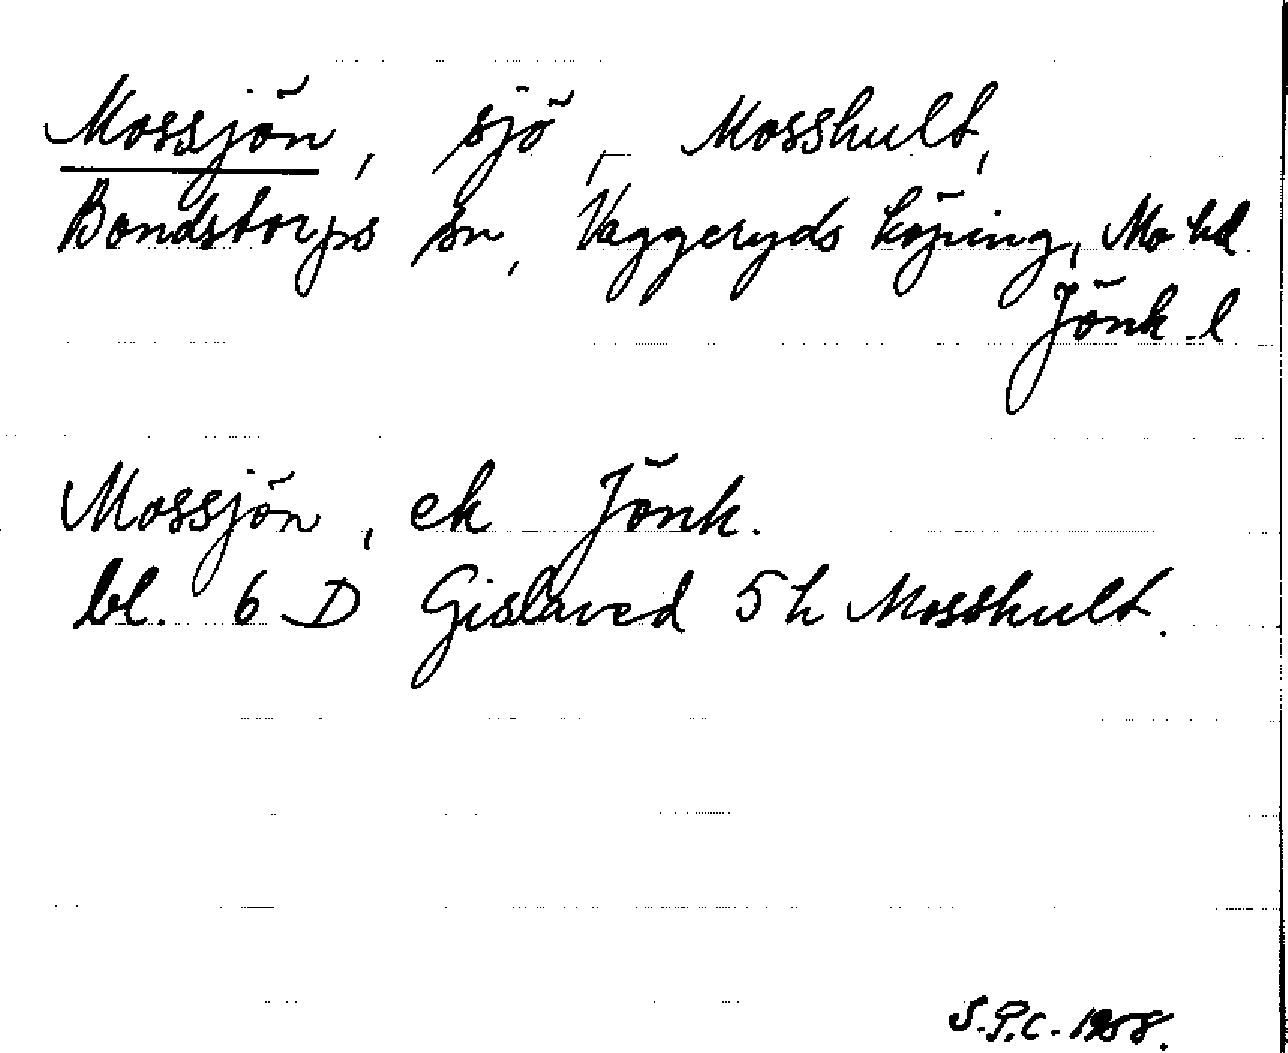 Mossjön, sjö, Mosshult,
Bondstorps sn, Vaggeryds köping, Mo hd
Jönk. l
Mossjön, ek Jönk.
bl. 6 D Gislaved 5 h Mosshult.
S.P.C. 1958.